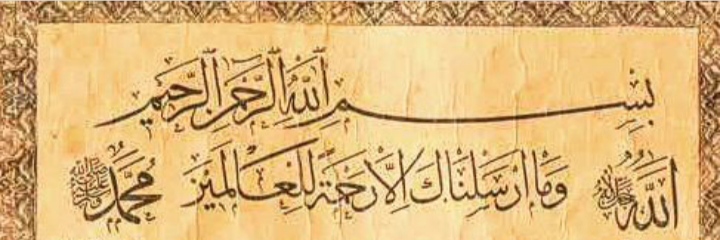 بِسْمِ اللَّهِ الرَّحْمَنِ الرَّحِيمِ
اللَّه جل جلاله وَمَا أَرْسَلْنَاكَ إِلَّا رَحْمَةً لِلْعَالَمِينَ مُحَمَّد صلى الله عليه وسلم